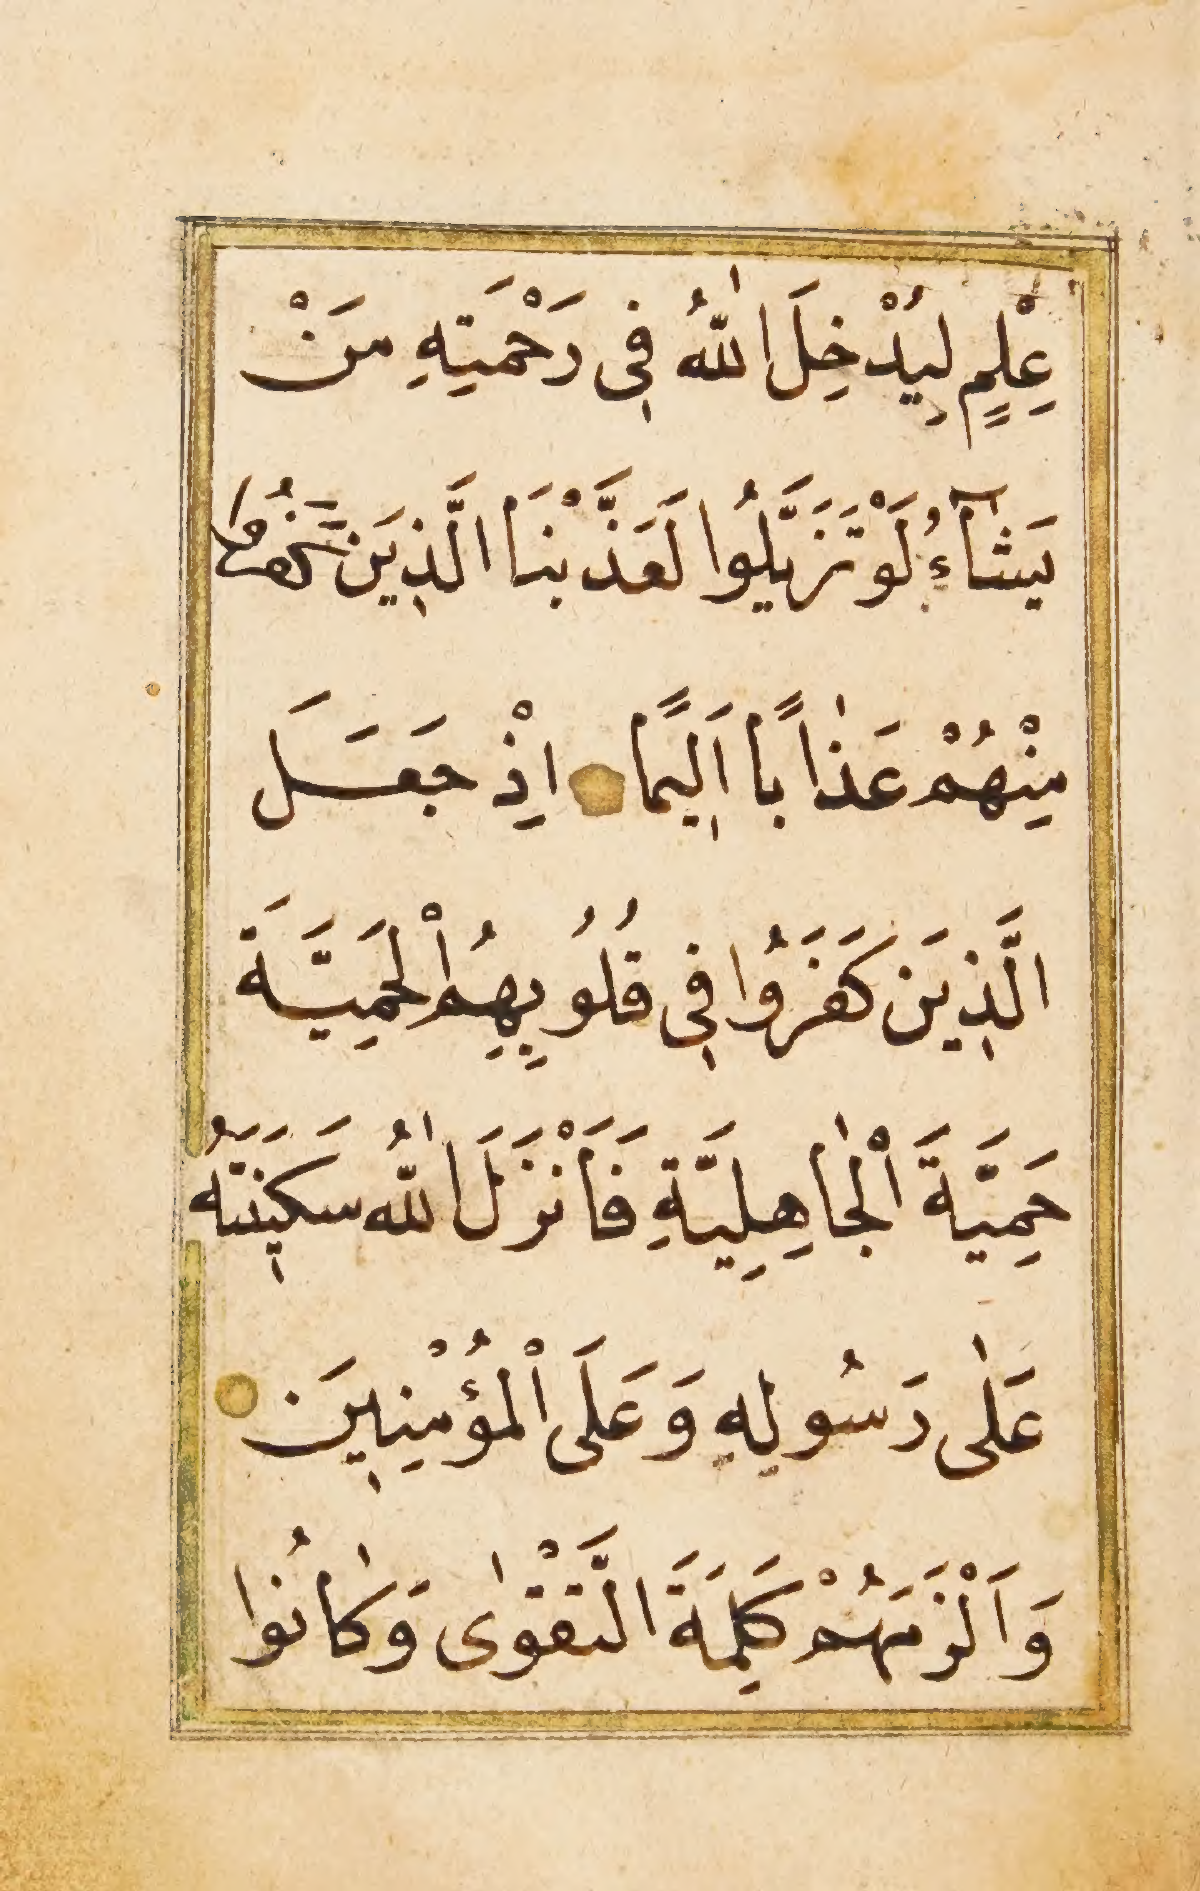 عِلْمٍ لِيُدْخِلَ اللّٰهُ فِى رَحْمَتِهِ مَنْ
يَشَآءُ لَوْ تَزَيَّلُوا لَعَذَّبْنَا الَّذِينَ كَفَرُوا
مِنْهُمْ عَذٰابًا اَلِيمًا اِذْ جَعَلَ
الَّذِينَ كَفَرُوا فِى قُلُوبِهِمُ الْحَمِيَّةَ
حَمِيَّةَ الْجٰاهِلِيَّةِ فَاَنْزَلَ اللّٰهُ سَكِينَتَهُ
عَلٰى رَسُولِهِ وَعَلَى الْمُؤْمِنِينَ
وَاَلْزَمَهُمْ كَلِمَةَ التَّقْوٰى وَكٰانُوا